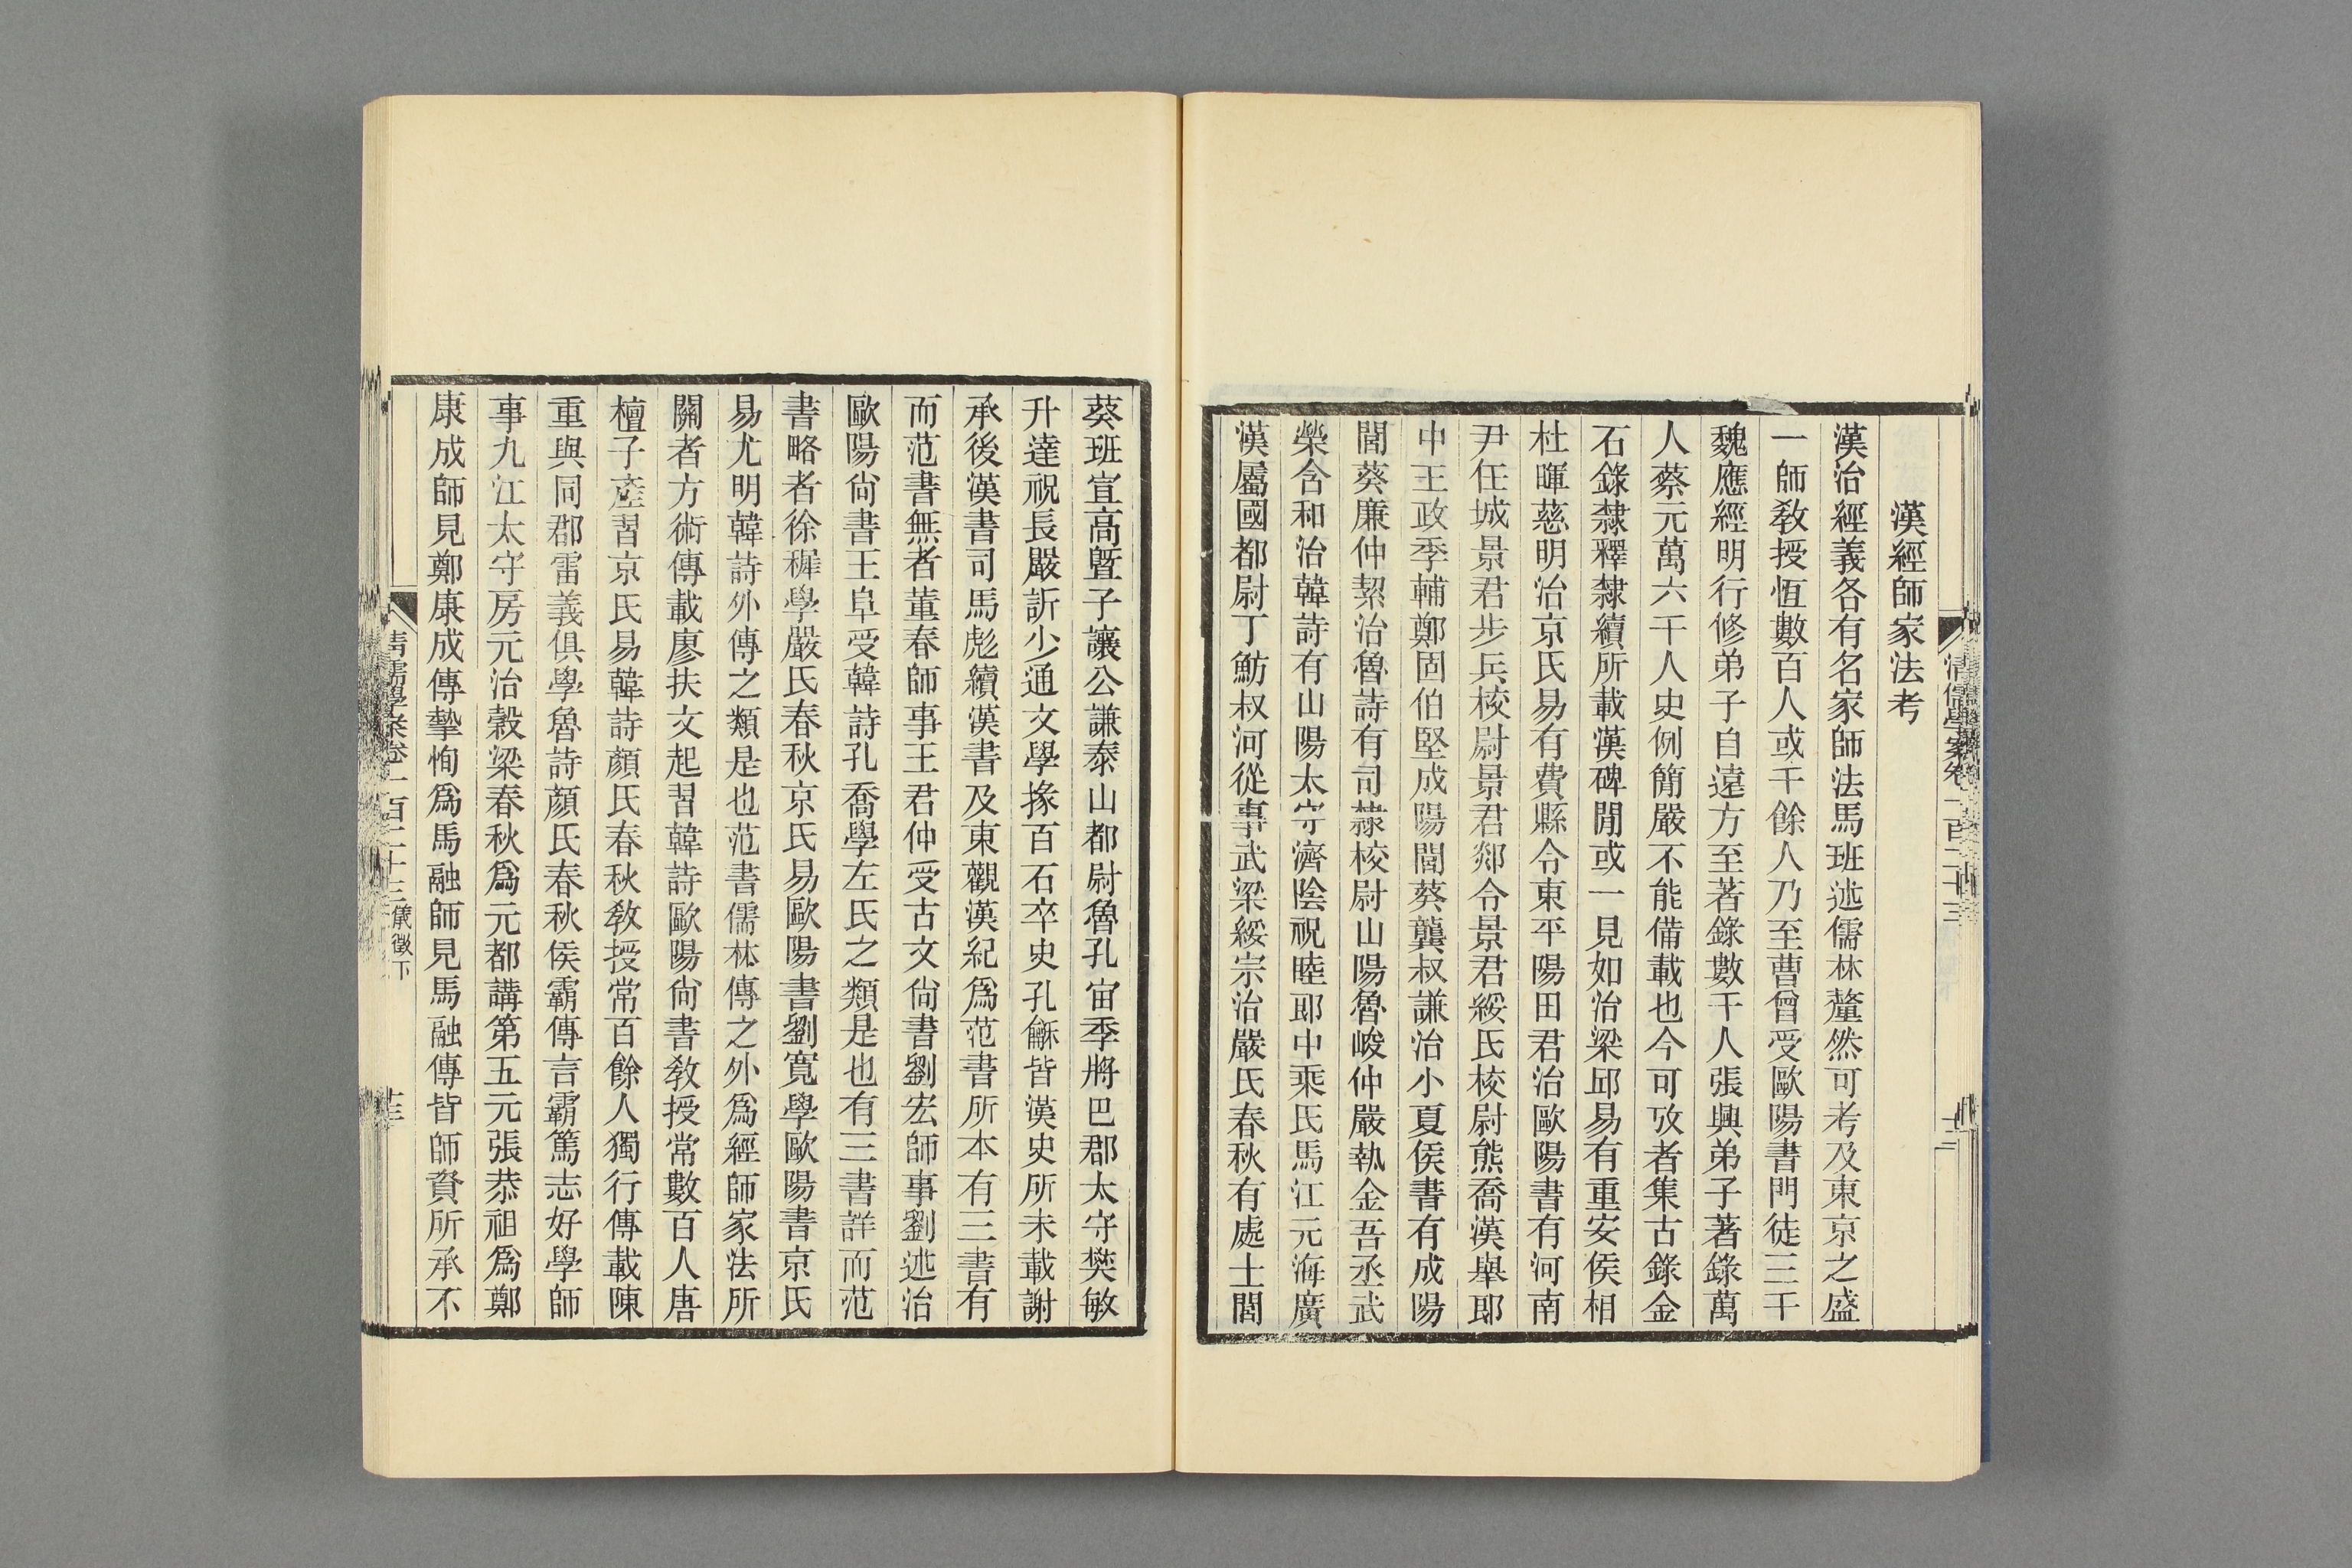 漢經師家法考
漢治經義各有名家師法馬班述儒林釐然可考及東京之盛
一師敎授恆數百人或千餘人乃至曹曾受歐陽書門徒三千
魏應經明行修弟子自遠方至著錄數千人張興弟子著錄萬
人蔡元萬六千人史例簡嚴不能備載也今可攷者集古錄金
石錄隸釋隸續所載漢碑閒或一見如治梁邱易有重安侯相
杜暉慈明治京氏易有費縣令東平陽田君治歐陽書有河南
尹任城景君步兵校尉景君郯令景君綏氏校尉熊喬漢舉郎
中王政季輔鄭固伯堅成陽閭葵龔叔謙治小夏侯書有成陽
閭葵廉仲絜治魯詩有司隸校尉山陽魯峻仲嚴執金吾丞武
榮含和治韓詩有山陽太守濟陰祝睦郎中乘氏馬江元海廣
漢屬國都尉丁魴叔河從事武梁綏宗治嚴氏春秋有處士閭
葵班宣高曁子讓公謙泰山都尉魯孔宙季將巴郡太守樊敏
升達祝長嚴訢少通文學掾百石卒史孔龢皆漢史所未載謝
承後漢書司馬彪續漢書及東觀漢紀爲范書所本有三書有
而范書無者董春師事王君仲受古文尙書劉宏師事劉述治
歐陽尙書王阜受韓詩孔喬學左氏之類是也有三書詳而范
書略者徐穉學嚴氏春秋京氏易歐陽書劉寬學歐陽書京氏
易尤明韓詩外傳之類是也范書儒林傳之外爲經師家法所
關者方術傳載廖扶文起習韓詩歐陽尙書敎授常數百人唐
檀子產習京氏易韓詩顏氏春秋敎授常百餘人獨行傳載陳
重與同郡雷義俱學魯詩顏氏春秋侯霸傳言霸篤志好學師
事九江太守房元治穀梁春秋爲元都講第五元張恭祖爲鄭
康成師見鄭康成傳摯恂爲馬融師見馬融傳皆師資所承不
清儒學案卷一百二十三儀徵下